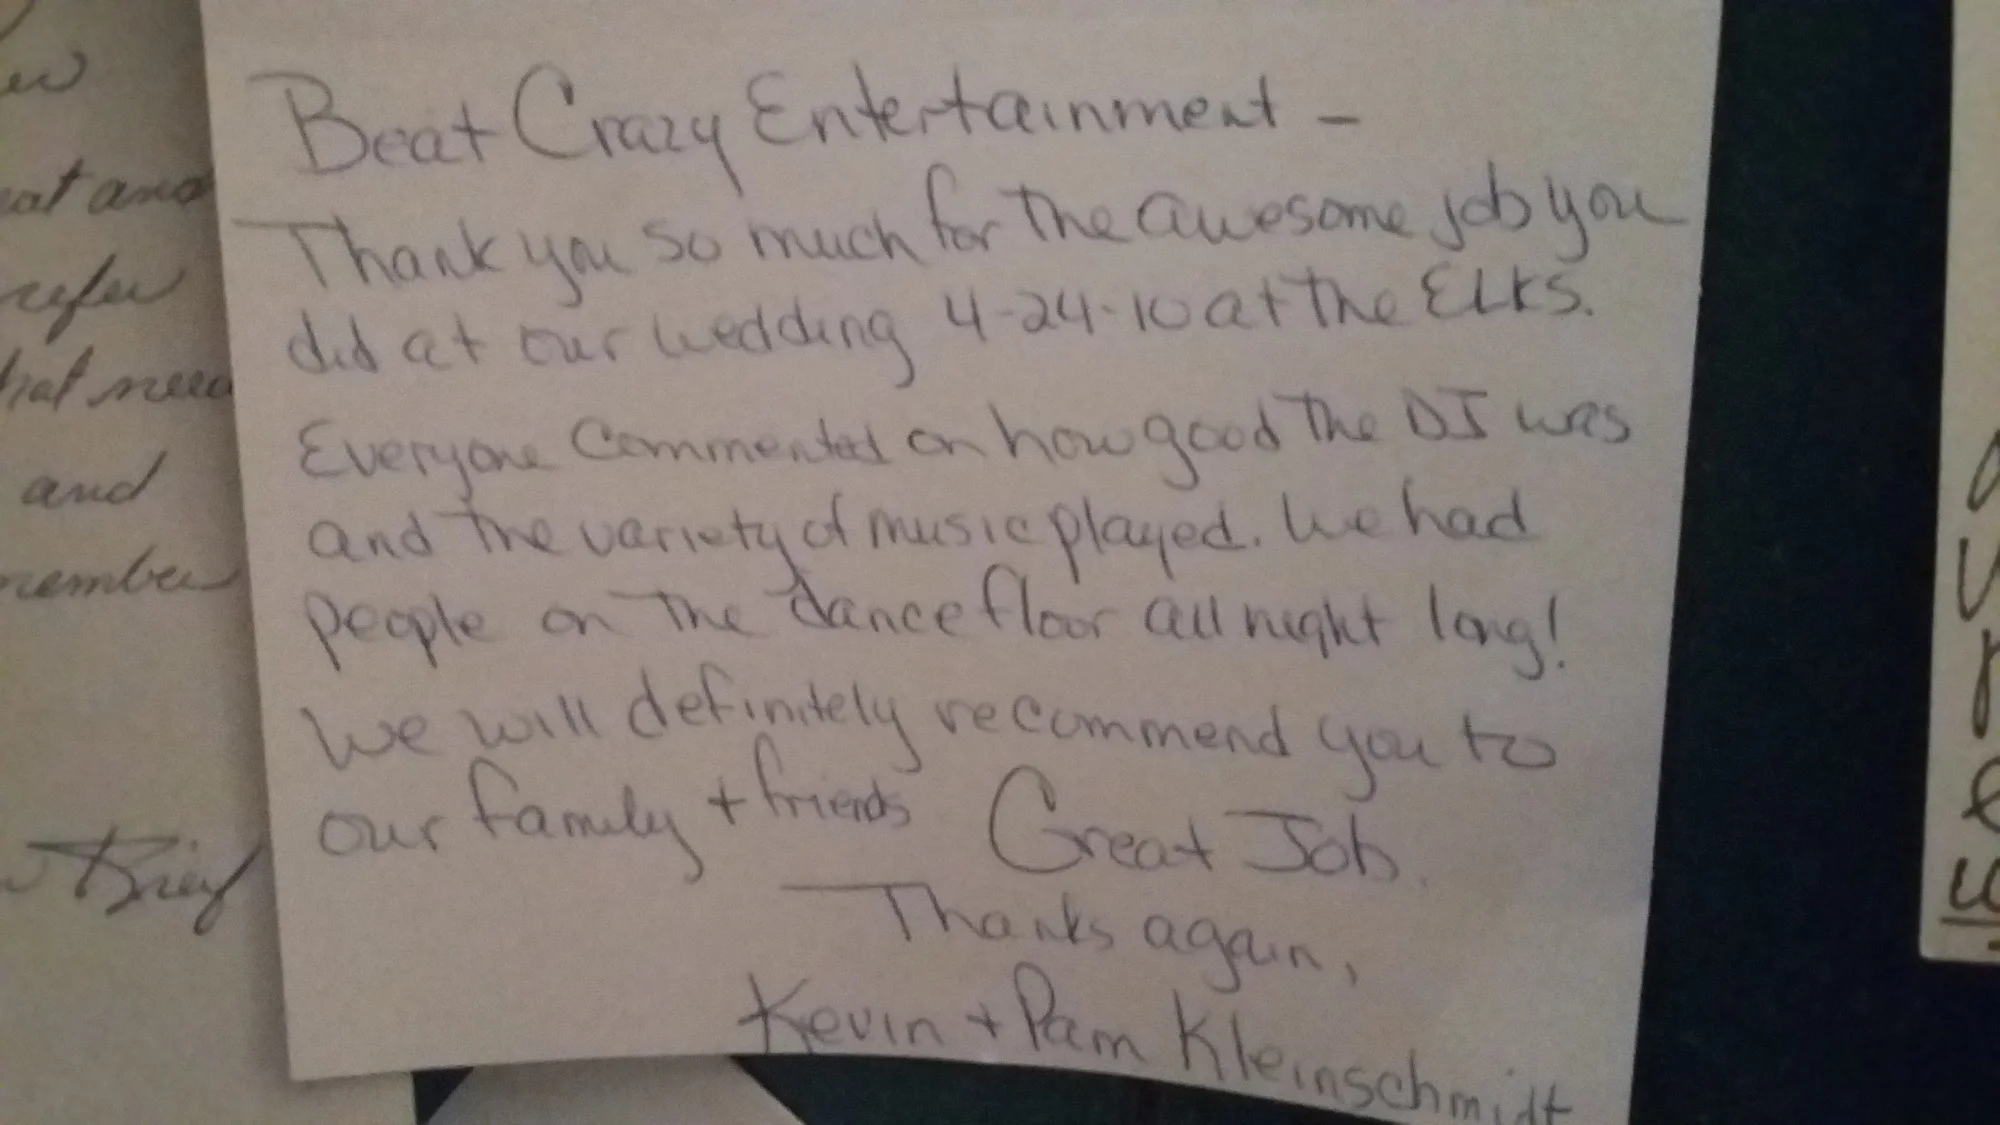 Beat Crazy Entertainment -
Thank you so much for the awesome job you
did at our wedding 4-24-10 at the ELKS.
Everyone commented on how good the DJ was
and the variety of music played. We had
people on the dance floor all night long!
We will definitely recommend you to
our family + friends Great Job.
Thanks again,
Kevin + Pam Kleinschmidt
and
refer
and